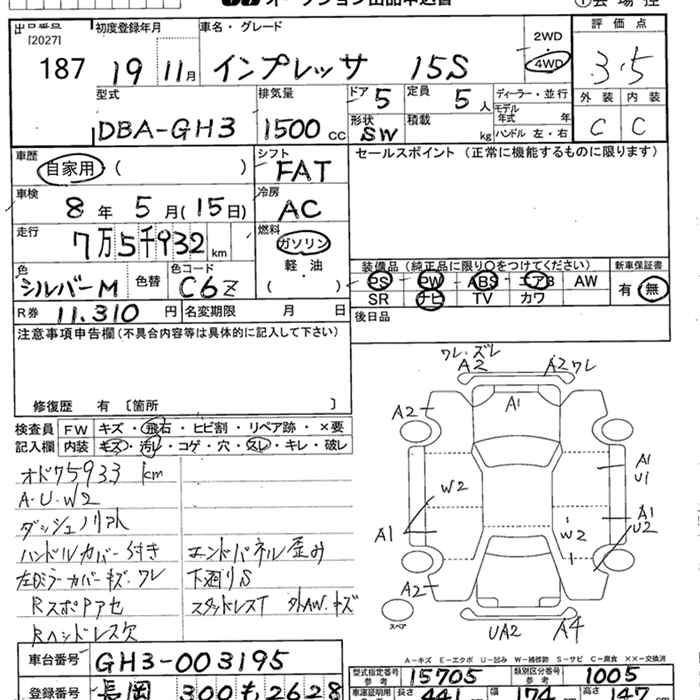 オークション出品申込書 ①会場控
出品番号 初度登録年月 車名・グレード 2WD 評価点
[2027] 187 19年 11月 インプレッサ 15S 4WD 3.5
型式 排気量 ドア 5 定員 5人 ディーラー・並行 外装 内装
DBA-GH3 1500cc 形状 SW 積載 kg モデル年式 年 ハンドル 左・右 C C
車歴 自家用 ( ) シフト FAT セールスポイント (正常に機能するものに限ります)
車検 8年 5月(15日) 冷房 AC
走行 7万5千932km 燃料 ガソリン
軽・油
( )
色 シルバーM 色替 色コード C6Z
装備品 (純正品に限り○をつけてください) 新車保証書
PS PW ABS エアB AW 有・無
SR ナビ TV カワ
R券 11,310円 名変期限 月 日 後日品
注意事項申告欄 (不具合内容等は具体的に記入して下さい)
修復歴 有 〔箇所 〕
検査員 FW キズ・飛石・ヒビ割・リペア跡・×要
記入欄 内装 キズ・汚れ・コゲ・穴・スレ・キレ・破レ
オドク75933 km
A・U・W2
ダッシュノリアト
ハンドルカバー付き エンドパネル歪み
左ドミラーカバーキズ、ワレ 下廻りS
RスポPアセ スタッドレスT 外AW.キズ
Rヘッドレス欠
ワレ・ズレ
A2 A2ワレ
A2 A1
A1
U1
W2
A1 A1
U2
W2
A2
スペア UA2 A4
A-キズ E-エクボ U-凹み W-補修跡 S-サビ C-腐食 ××-交換済
車台番号 GH3-003195 型式指定番号 参考 15705 類別区分番号 参考 1005
登録番号 長岡 300 も 2628 車庫証明用 長さ 441 幅 174 高さ 147cm